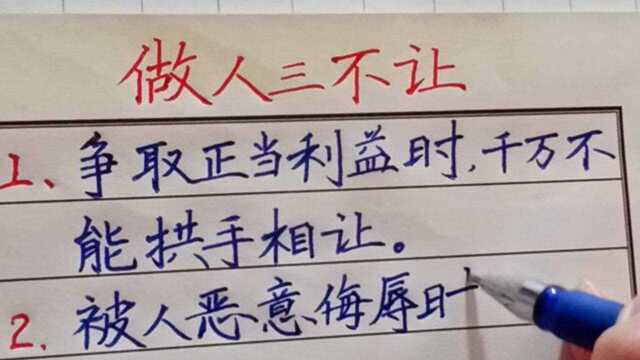 做人三不让
1、争取正当利益时,千万不
能拱手相让。
2、被人恶意侮辱